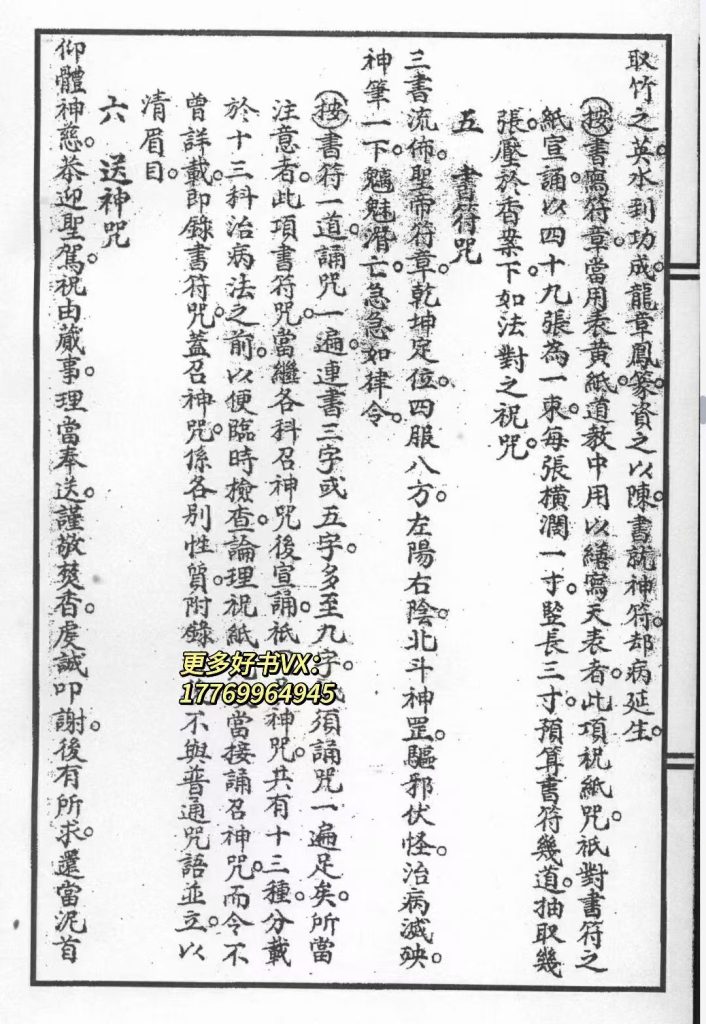 取竹之英。水到功成。龍章鳳篆。資之以陳。書就神符。却病延生。
㊡書寫符章。當用表黃紙。道教中用以繕寫天表者。此項祝紙咒。祇對書符之
紙宣誦。以四十九張為一束。每張橫濶一寸。豎長三寸。預算書符幾道。抽取幾
張。壓於香案下。如法對之祝咒。
五 書符咒
三書流佈。聖帝符章。乾坤定位。四服八方。左陽右陰。北斗神罡。驅邪伏怪。治病滅殃。
神筆一下。魑魅潛亡。急急如律令。
按書符一道。誦咒一遍。連書三字或五字。多至九字。須誦咒一遍足矣。所當
注意者。此項書符咒。當繼各科召神咒後宣誦。祇神咒。共有十三種。分載
於十三科治病法之前。以便臨時檢查。論理祝紙當接誦召神咒。而令不
曾詳載。即錄書符咒。蓋召神咒係各別性質。附錄不與普通咒語並立。以
清眉目。
六 送神咒
仰體神慈。恭迎聖駕。祝由蕆事。理當奉送。謹敬焚香。虔誠叩謝。後有所求。還當泥首
更多好书VX：
17769964945